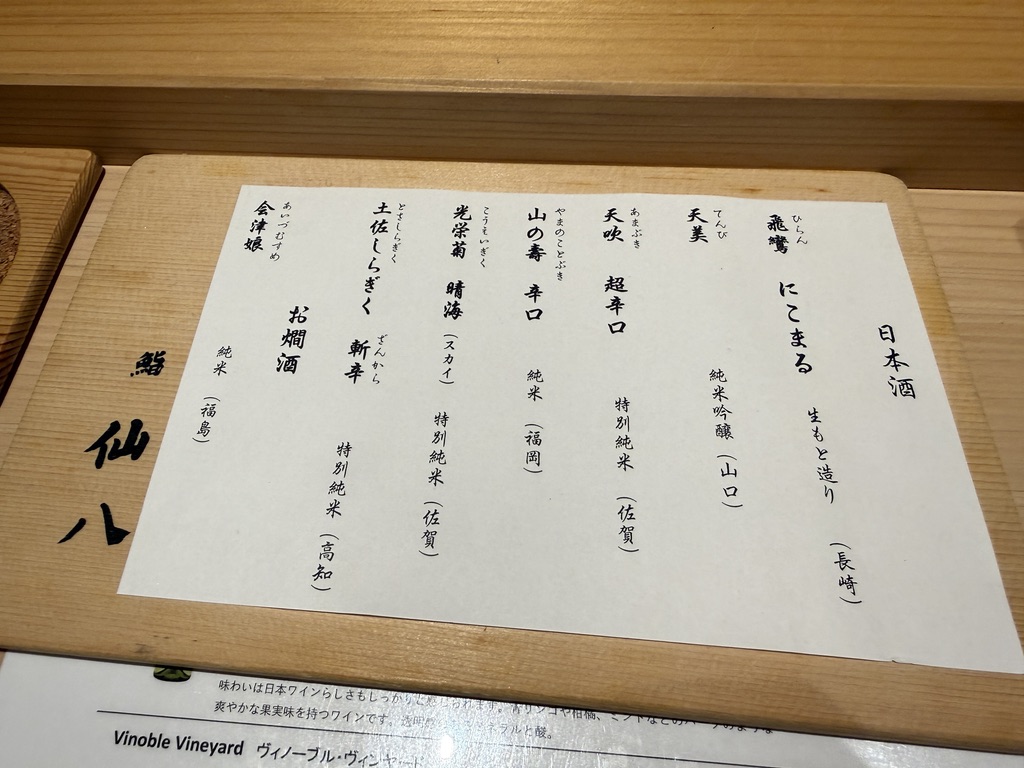 日本酒
ひらん
飛鸞 にこまる 生もと造り (長崎)
てんび
天美 純米吟醸 (山口)
あまぶき
天吹 超辛口 特別純米 (佐賀)
やまのことぶき
山の壽 辛口 純米 (福岡)
こうえいぎく
光栄菊 晴海 (スカイ) 特別純米 (佐賀)
とさしらぎく ざんから
土佐しらぎく 斬辛 特別純米 (高知)
お燗酒
あいづむすめ
会津娘 純米 (福島)
鮨 仙八
味わいは日本ワインらしさもしっかりと感じられます。青リンゴや柑橘、ミントなどのハーブのような
爽やかな果実味を持つワインです。透明 ネラルと酸。
Vinoble Vineyard ヴィノーブル・ヴィンヤード